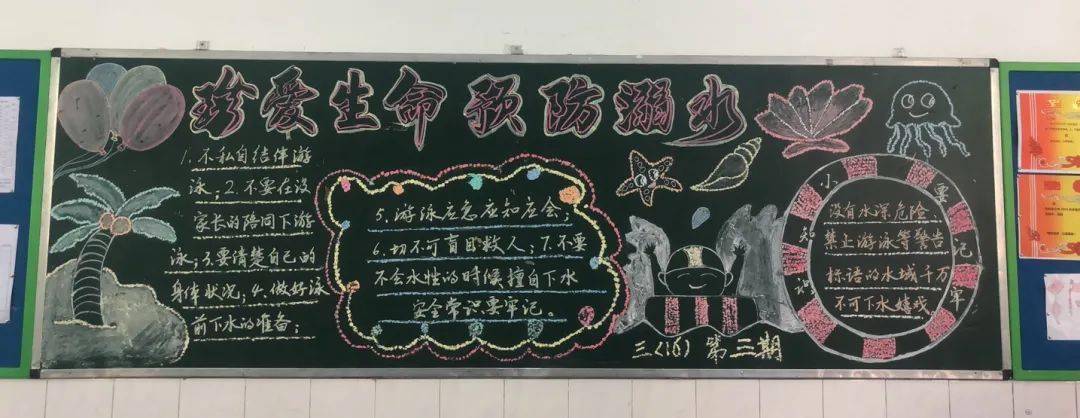 珍爱生命 预防溺水
1.不私自结伴游
泳;2.不要在没
家长的陪同下游
泳;3.要清楚自己的
身体状况;4.做好泳
前下水的准备;
5.游泳应急应知应会;
6.切不可盲目救人;7.不要
不会水性的时候擅自下水
安全常识要牢记。
小知识 要记牢
没有水深危险
禁止游泳等警告
标语的水域千万
不可下水嬉戏
三(16) 第三期